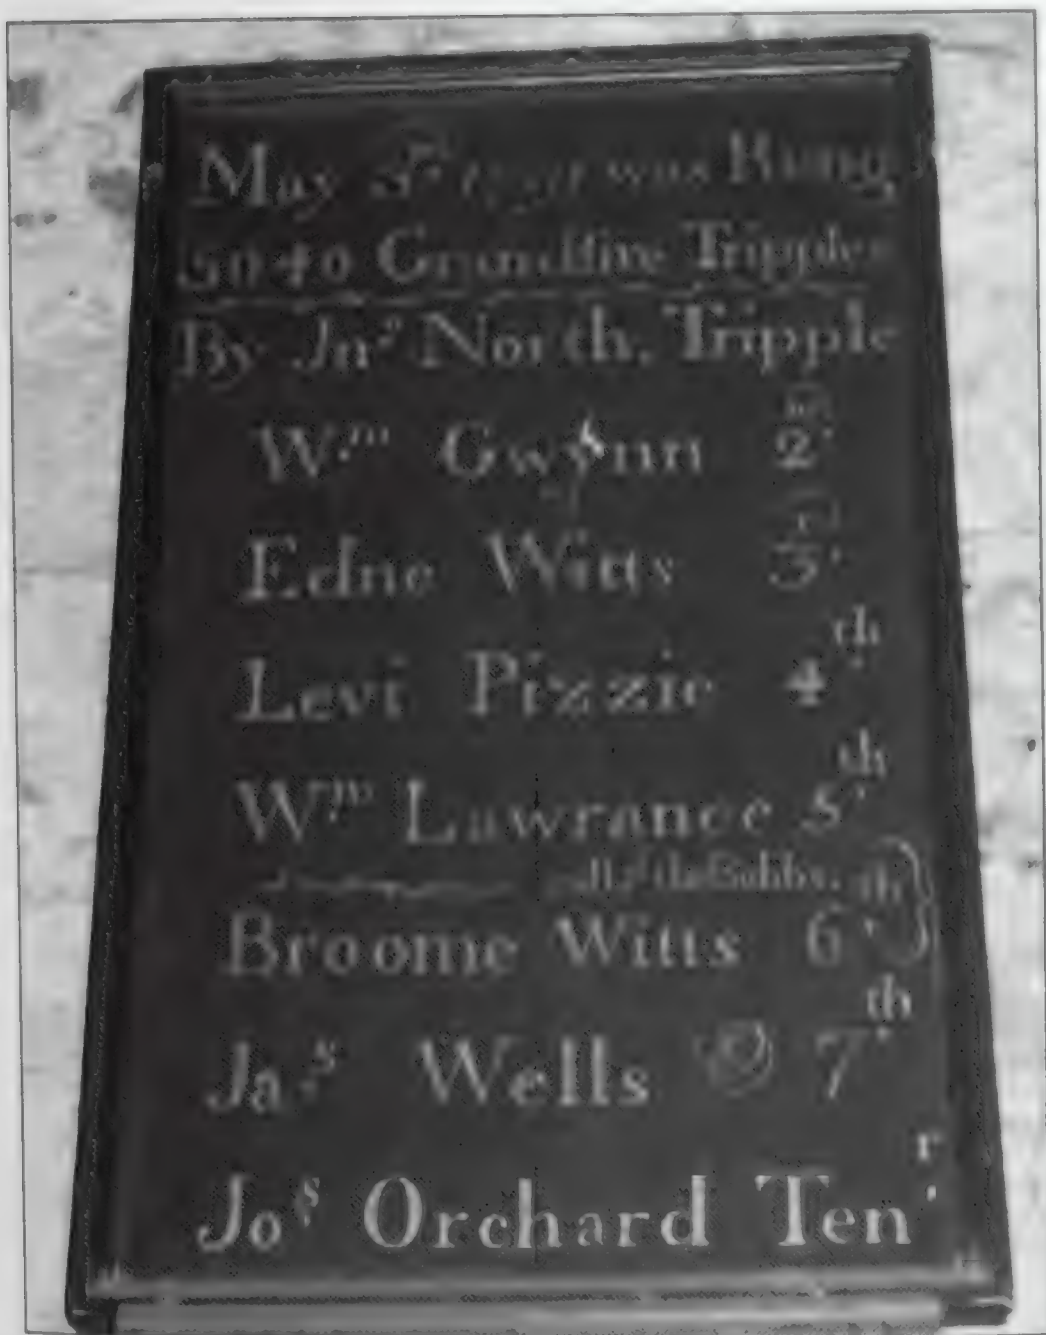 May 3.ᵈ was Rung
5040 Grandsire Tripples
By Jnº North. Tripple
W.ᵐ Gwynn 2.ⁿᵈ
Edne Witts 3.ʳᵈ
Levi Pizzie 4.ᵗʰ
W.ᵐ Lawrance 5.ᵗʰ
Broome Witts 6.ᵗʰ
Ja.ˢ Wells 7.ᵗʰ
Jo.ˢ Orchard Ten.ʳ